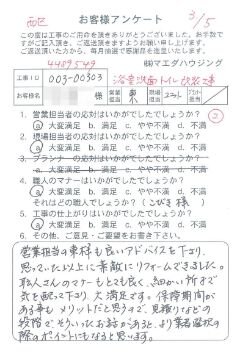 西区
お客様アンケート
3/5
この度は工事のご用命を頂きありがとうございました。お手数で
すがご記入頂き、ご返送頂きますようお願い申し上げます
ご返送頂いた方には、毎月抽選で感謝品を進呈いたします。
㈱マエダハウジング
工事ID 003-00303 浴室洗面トイレ改装工事
お客様名 様 営業担当 東 現場担当 プランナー担当
1. 営業担当者の応対はいかがでしたでしょうか?
ⓐ 大変満足 b. 満足 c. やや不満 d. 不満
2. 現場担当者の応対はいかがでしたでしょうか?
ⓐ 大変満足 b. 満足 c. やや不満 d. 不満
3. プランナーの応対はいかがでしたでしょうか?
a. 大変満足 b. 満足 c. やや不満 d. 不満
4. 職人のマナーはいかがでしたでしょうか?
ⓐ 大変満足 b. 満足 c. やや不満 d. 不満
それはどの職人でしょうか?( こびき 様 )
5. 工事の仕上がりはいかがでしたでしょうか?
ⓐ 大変満足 b. 満足 c. やや不満 d. 不満
6. その他、ご意見・ご要望をお書き下さい。
営業担当の東様も良いアドバイスを下さり、
思っていた以上に素敵にリフォームできました。
職人さんのマナーもとても良く、細かい所まで
気を配って下さり、大満足です。保障期間が
ある事も、メリットだと思うので、見積りなどの
段階で、そういったお話があると、より業者選択の
際のポイントにもなると思います。